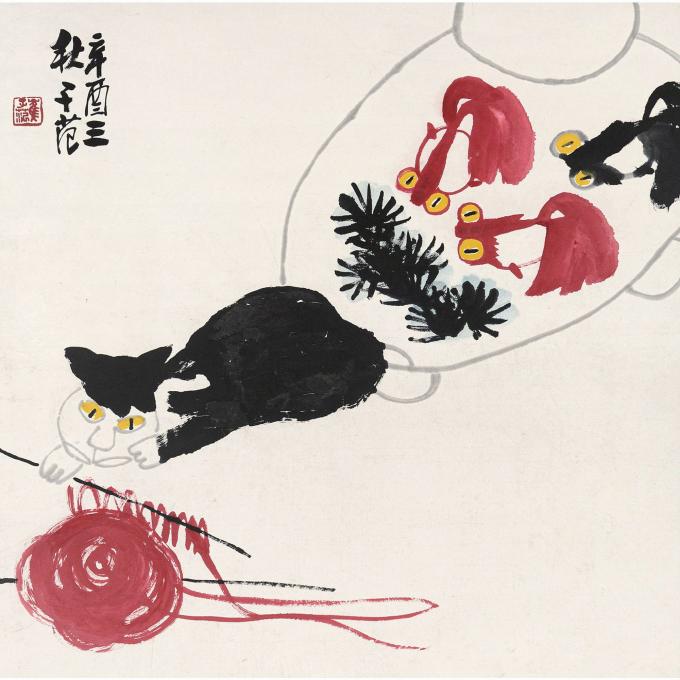 辛酉三
秋子范